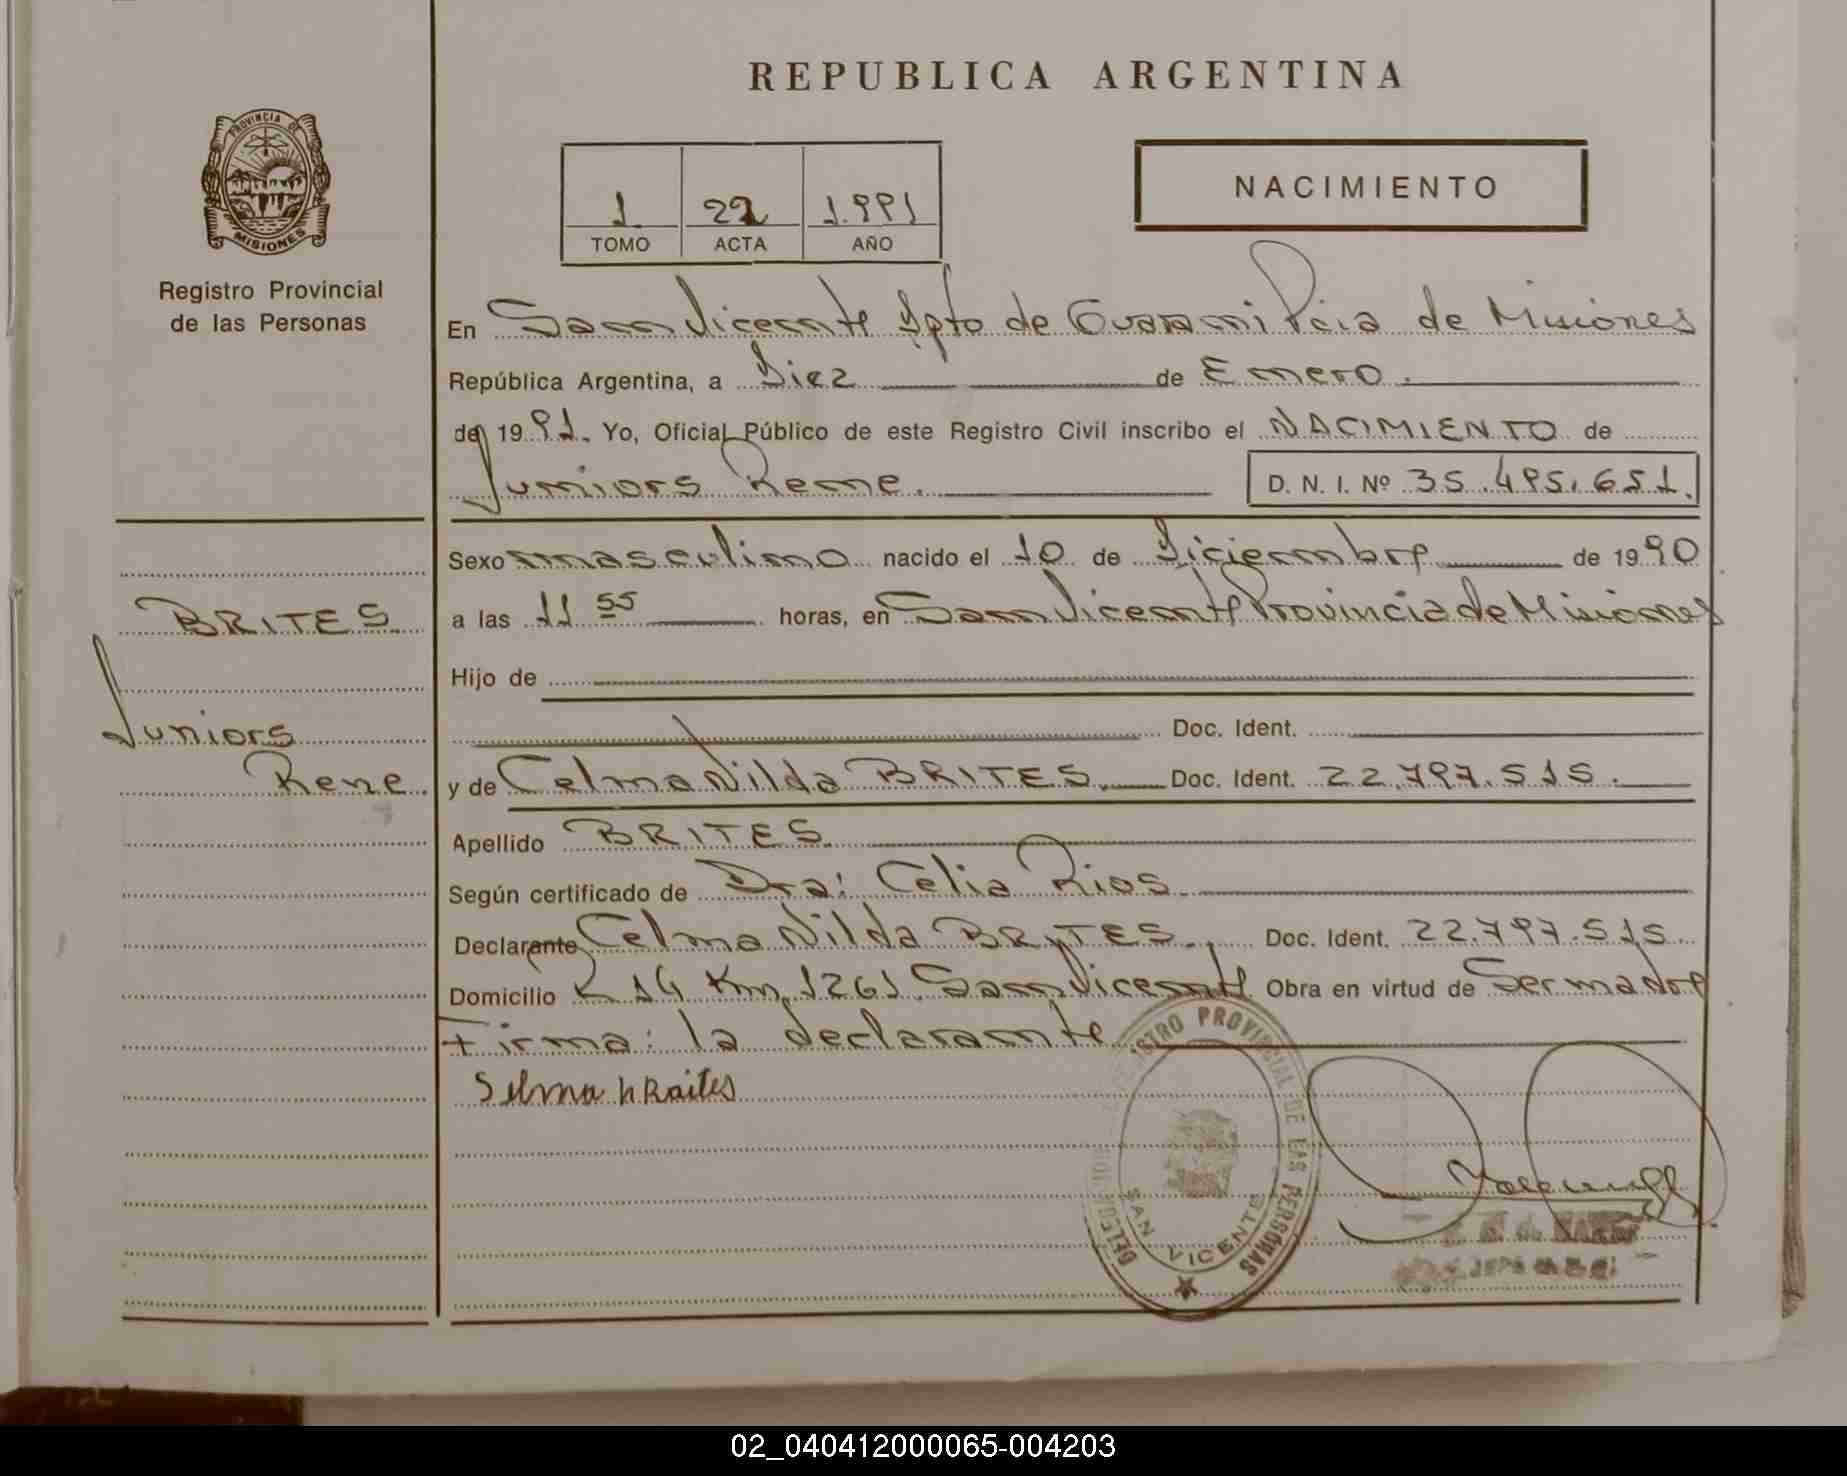 REPUBLICA ARGENTINA
PROVINCIA DE
MISIONES
Registro Provincial
de las Personas
NACIMIENTO
1 22 1.991
TOMO ACTA AÑO
En San Vicente Dpto de Guarani Pcia de Misiones
República Argentina, a Diez de Enero.
de 1991. Yo, Oficial Público de este Registro Civil inscribo el NACIMIENTO de
Juniors Rene. D. N. I. Nº 35.495.651.
Sexo masculino nacido el 10 de Diciembre de 1990
a las 11 55 horas, en San Vicente Provincia de Misiones
Hijo de
Doc. Ident.
y de Celma Nilda BRITES. Doc. Ident. 22.797.515.
Apellido BRITES.
Según certificado de Dra: Celia Rios.
Declarante Celma Nilda BRITES., Doc. Ident. 22.797.515.
Domicilio R 14 Km 1261 San Vicente Obra en virtud de Ser madre
Firma: la declarante
Selma
BRITES
Juniors
Rene.
REGISTRO PROVINCIAL DE LAS PERSONAS
DELEGACION
SAN VICENTE
02_040412000065-004203